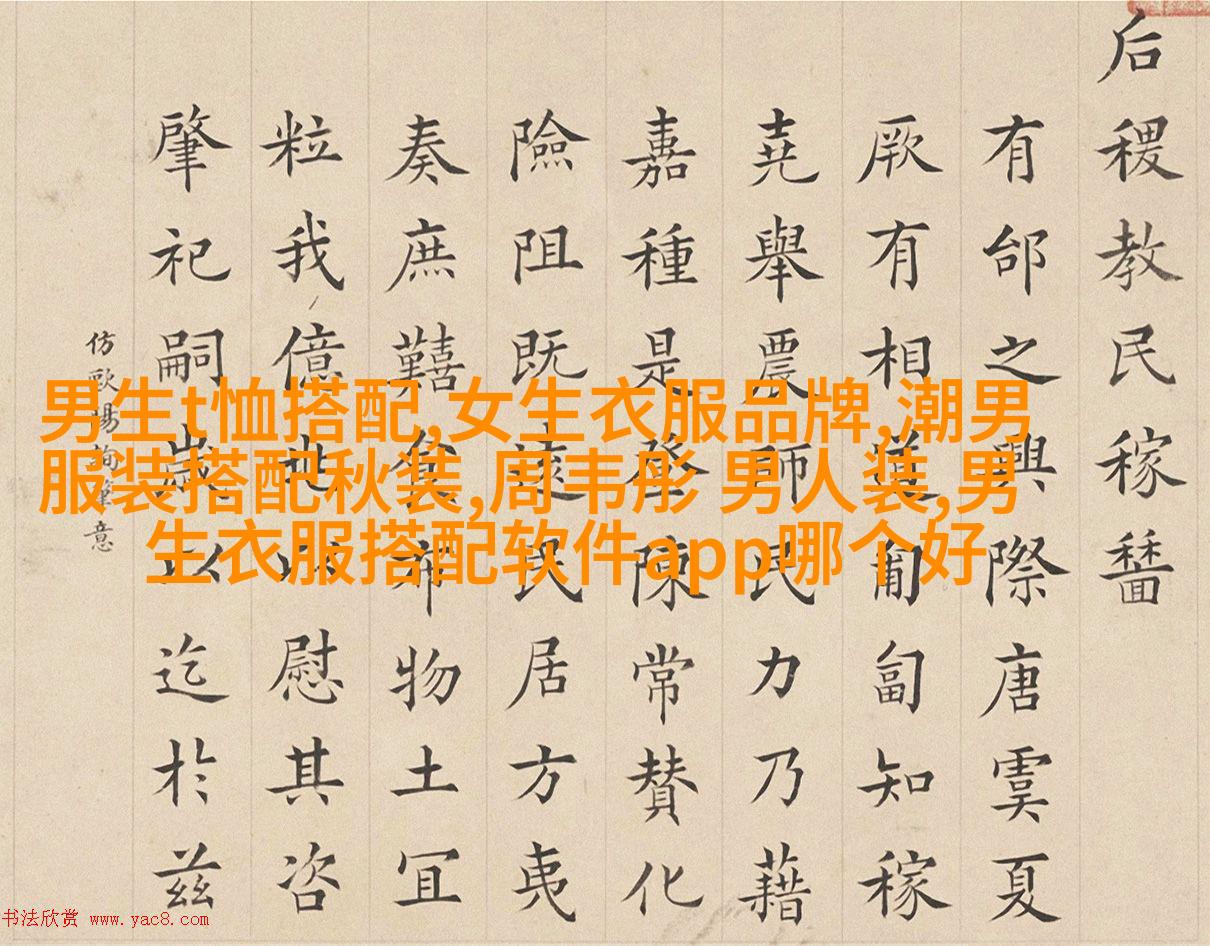 后稷教民稼穡
有邰之興際唐虞夏
厥有相道匍匐知稼
堯舉農師民力乃藉
嘉種是降陳常賛化
險阻既遠民居方夷
奏庶囏食物土冝
粒我億慰其咨
肇祀嗣歲以迄於茲
仿歐陽詢筆意
男生t恤搭配,女生衣服品牌,潮男
服装搭配秋装,周韦彤 男人装,男
生衣服搭配软件app哪个好
书法欣赏 www.yac8.com